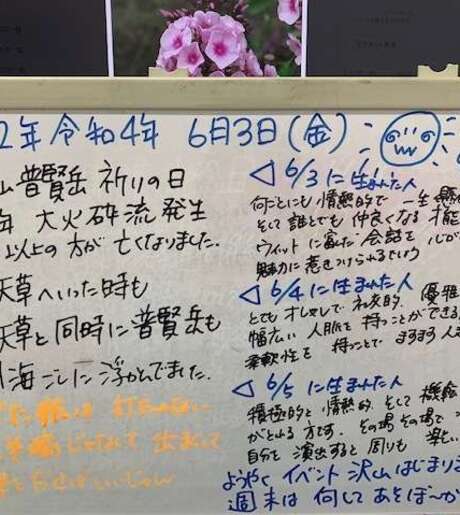 2年 令和4年 6月3日(金)
山 普賢岳 祈りの日
年 大火砕流 発生
以上の方が 亡くなりました.
天草へいった時も
天草と同時に普賢岳も
海ごしに浮かんでました.
◁ 6/3 に生まれた人
何ごとにも情熱的で 一生懸
そして誰とでも 仲良くなる才能
ウィットに富んだ会話を 心が
魅力に惹きつけられるという
◁ 6/4 に生まれた人
とても オシャレで 社交的. 優雅
幅広い 人脈を 持つことができる
柔軟性を 持つことで ますます 人
◁ 6/5 に生まれた人
積極的と 情熱的 そして 機転
がとれる 方です. その場 その場で
自分を 演出すると 周りも 楽し
ようやく イベント 沢山 はじまりま
週末は 何して あそぼ〜か